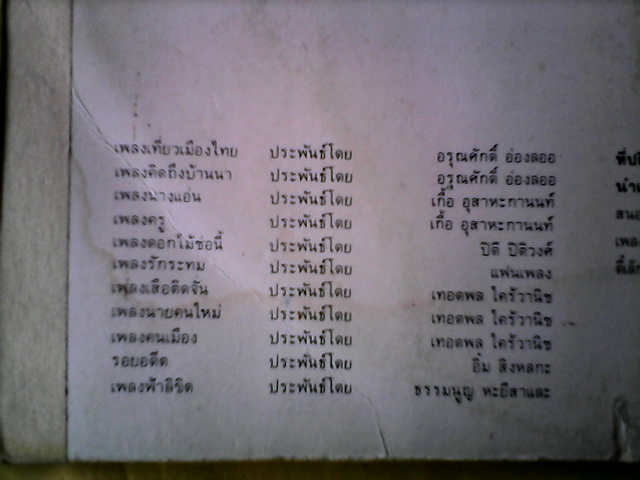 เพลงเที่ยวเมืองไทย ประพันธ์โดย อรุณศักดิ์ อ่องลออ
เพลงคิดถึงบ้านนา ประพันธ์โดย อรุณศักดิ์ อ่องลออ
เพลงนางแอ่น ประพันธ์โดย เกื้อ อุสาหะกานนท์
เพลงครู ประพันธ์โดย เกื้อ อุสาหะกานนท์
เพลงดอกไม้ช่อนี้ ประพันธ์โดย ปิติ ปิติวงศ์
เพลงรักระทม ประพันธ์โดย แฟนเพลง
เพลงเสือติดจั่น ประพันธ์โดย เทอดพล ใคร้วานิช
เพลงนายคนใหม่ ประพันธ์โดย เทอดพล ใคร้วานิช
เพลงคนเมือง ประพันธ์โดย เทอดพล ใคร้วานิช
รอยอดีต ประพันธ์โดย อิ๋ม สิงหลกะ
เพลงฟ้าลิขิต ประพันธ์โดย ธรรมนูญ หะยีสาและ